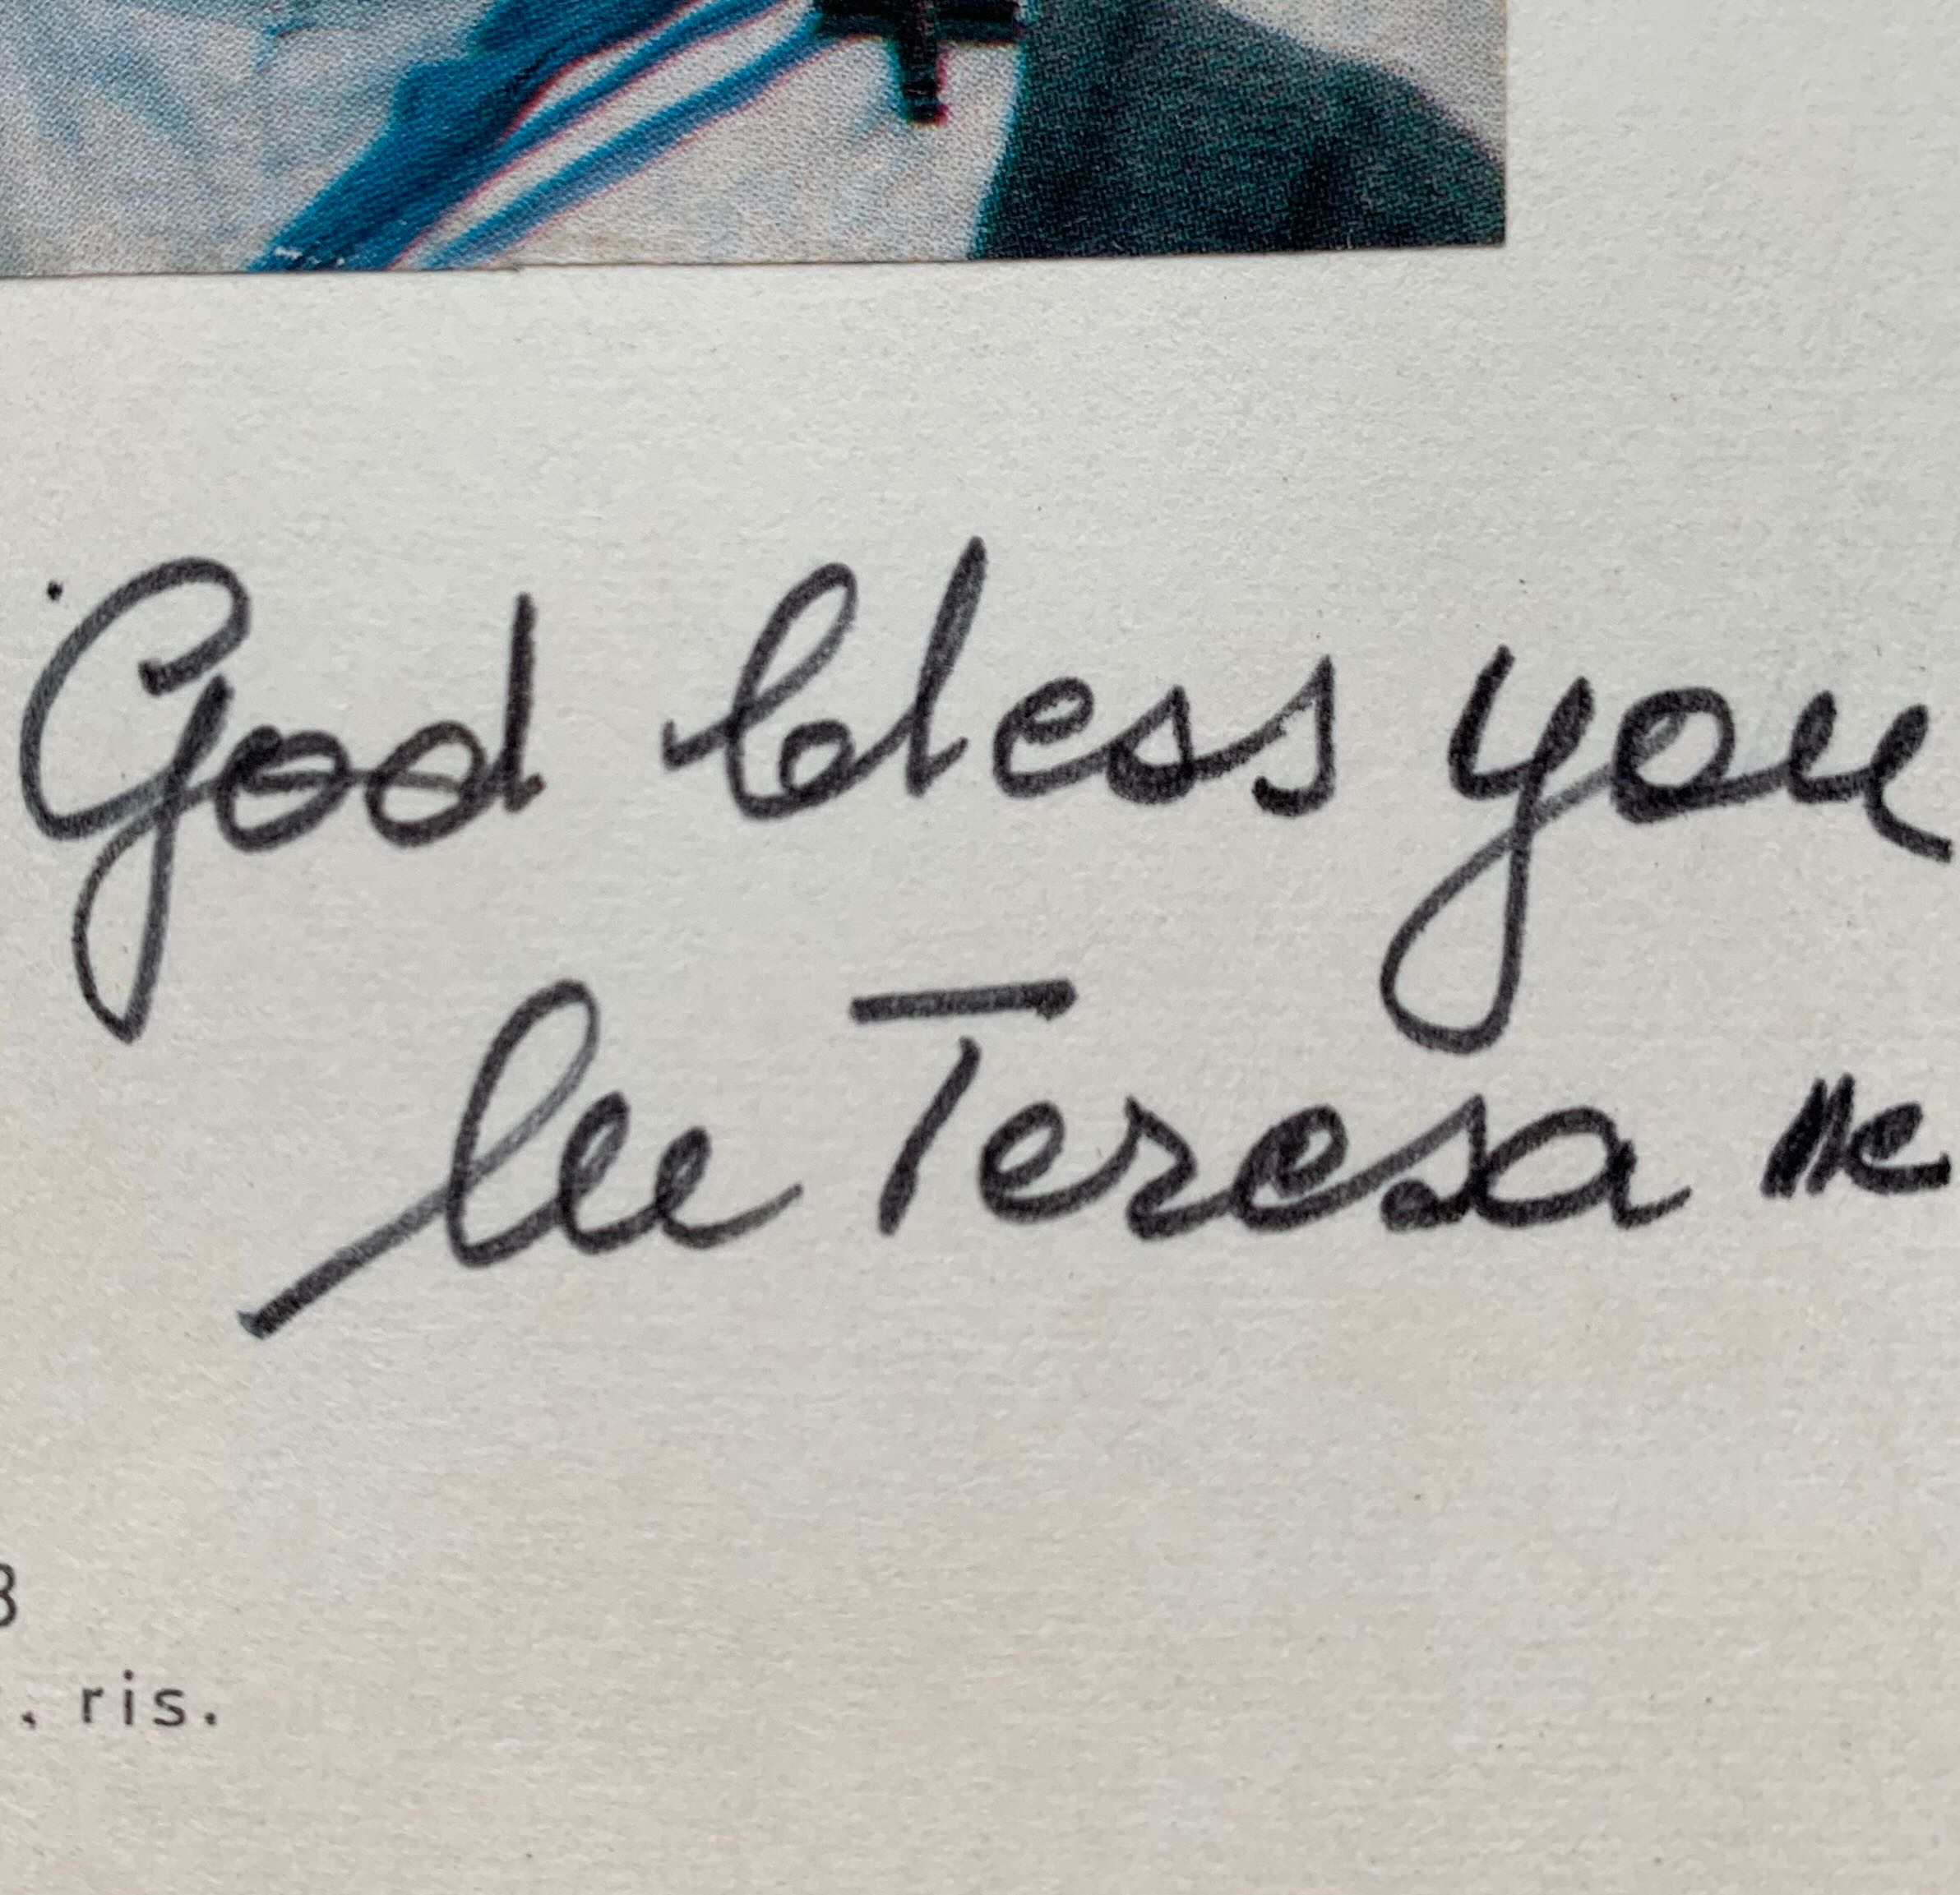 God bless you
lee Teresa mc
8
. ris.